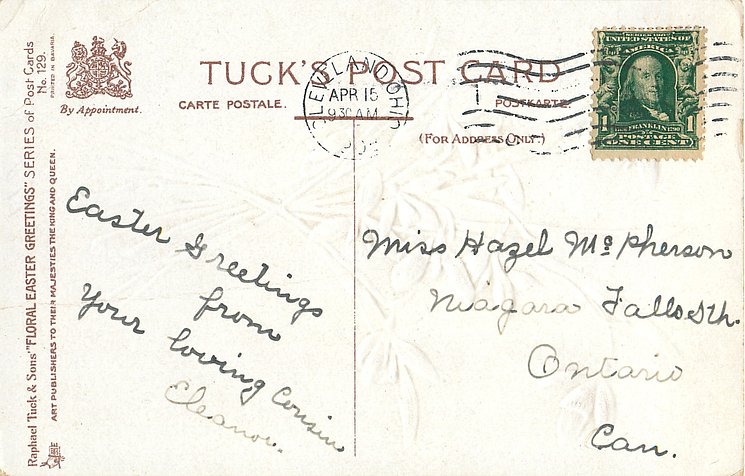 Raphael Tuck & Sons' "FLORAL EASTER GREETINGS" SERIES of Post Cards
No. 129.
PRINTED IN BAVARIA
ART PUBLISHERS TO THEIR MAJESTIES THE KING AND QUEEN.
By Appointment.
TUCK'S POST CARD
CARTE POSTALE.
POSTKARTE
(FOR ADDRESS ONLY.)
CLEVELAND, OHIO
APR 15
930AM
SERIES 1902
UNITED STATES OF
AMERICA
1 1
FRANKLIN
POSTAGE
ONE CENT
Easter Greetings
from
Your loving Cousin
Eleanor.
Miss Hazel McPherson
Niagara Falls Sth.
Ontario
Can.